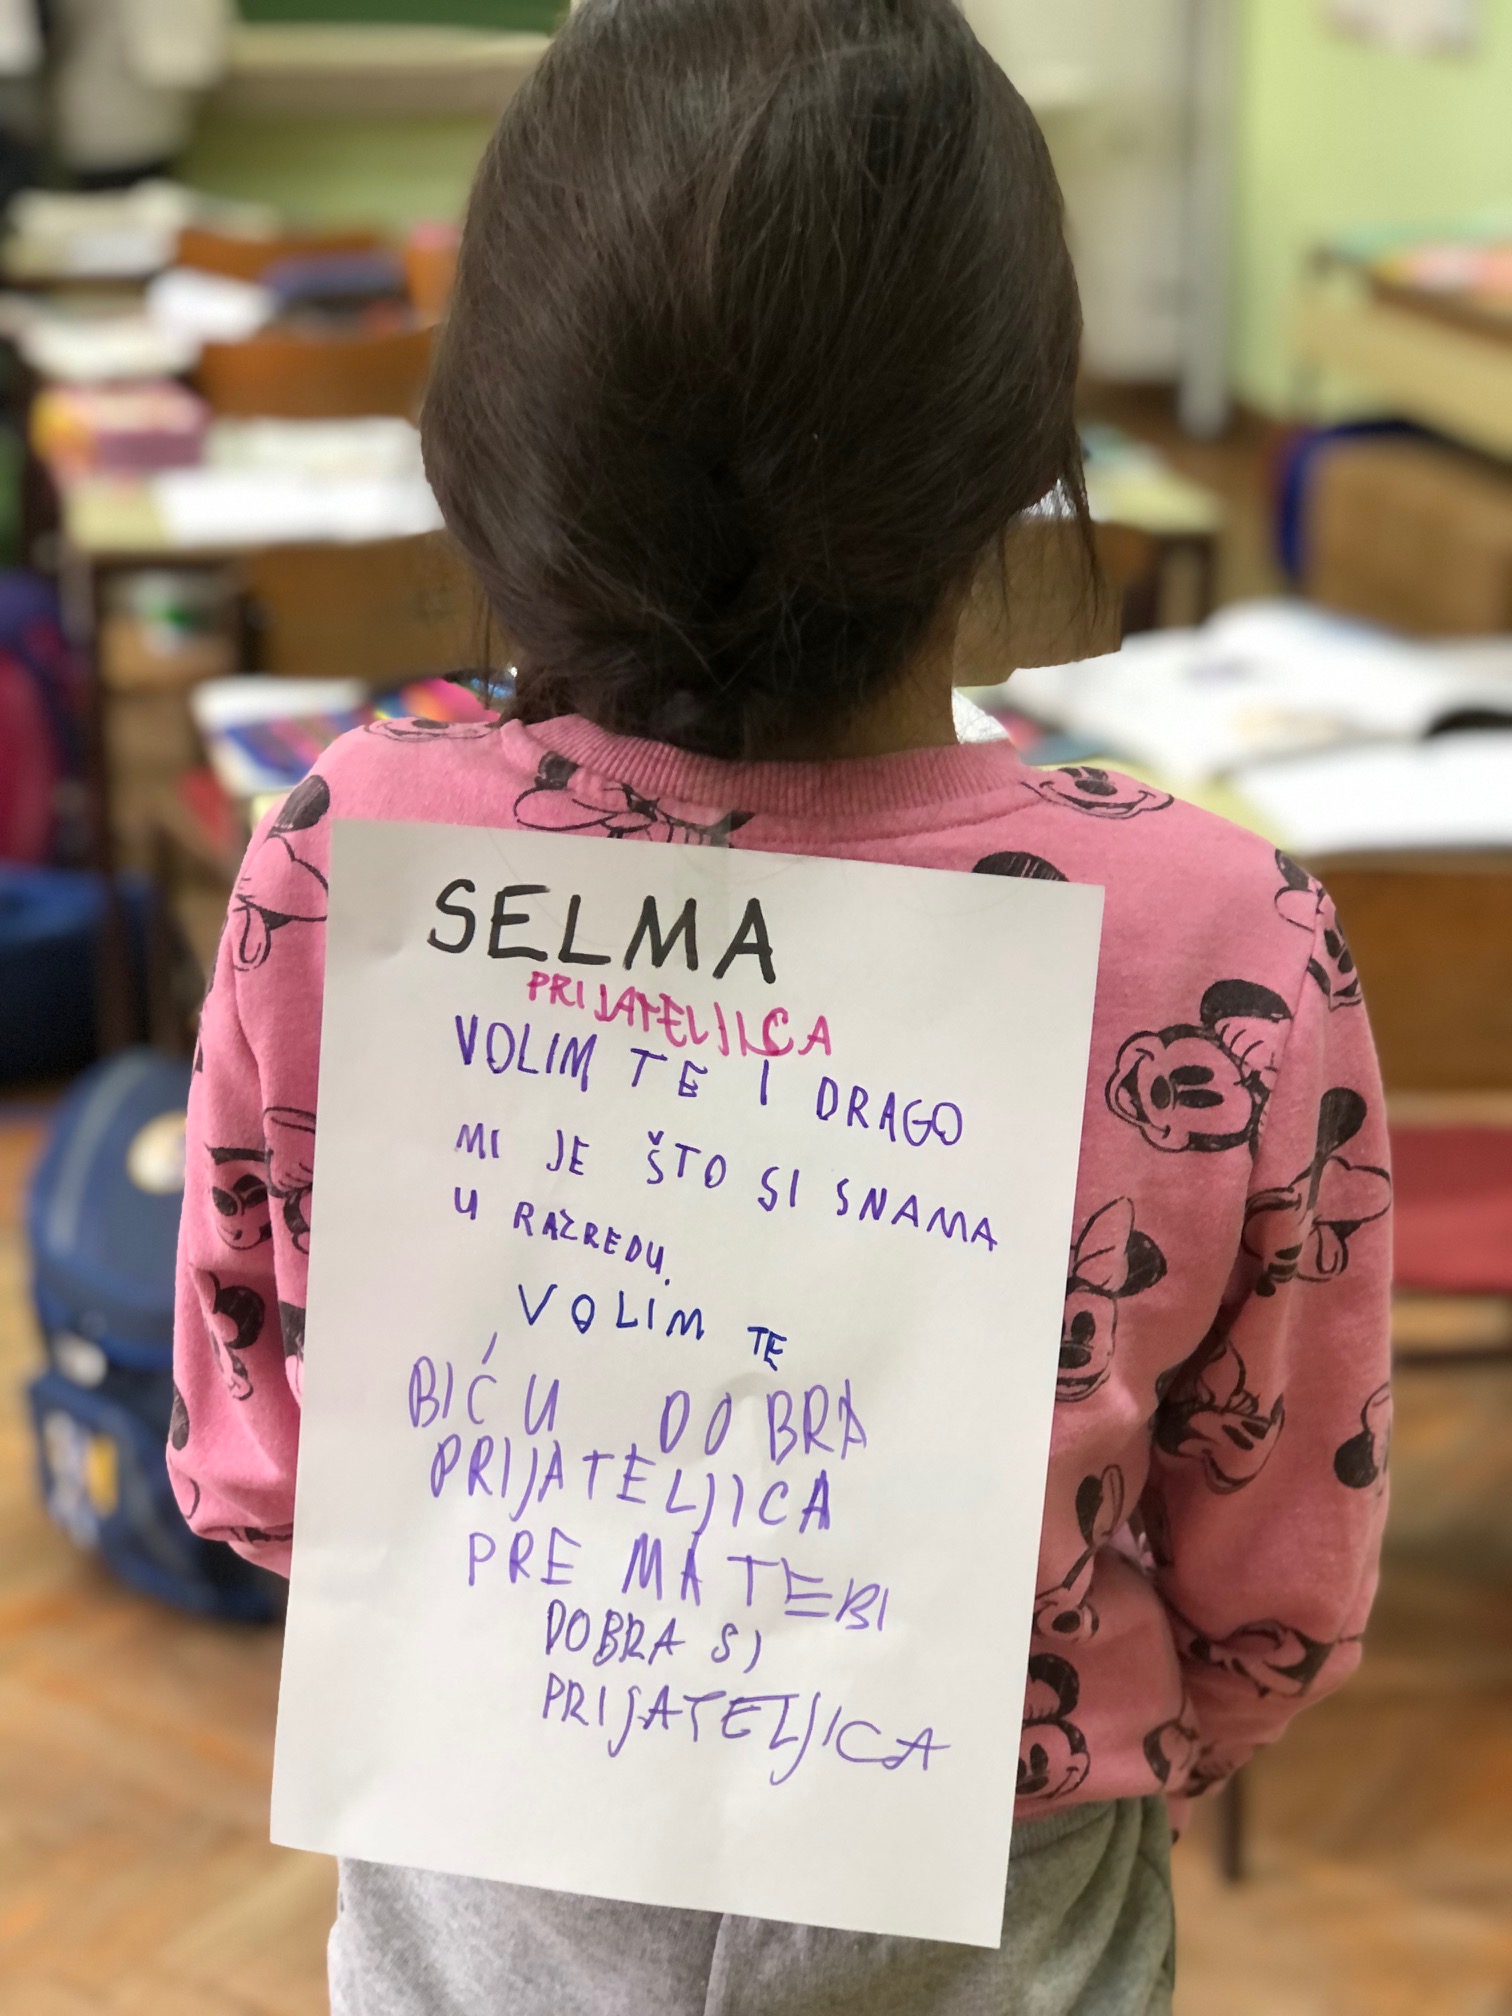 SELMA
PRIJATELJICA
VOLIM TE I DRAGO
MI JE ŠTO SI SNAMA
U RAZREDU.
VOLIM TE
BIĆU DOBRA
PRIJATELJICA
PRE MA TEBI
DOBRA SI
PRIJATELJICA